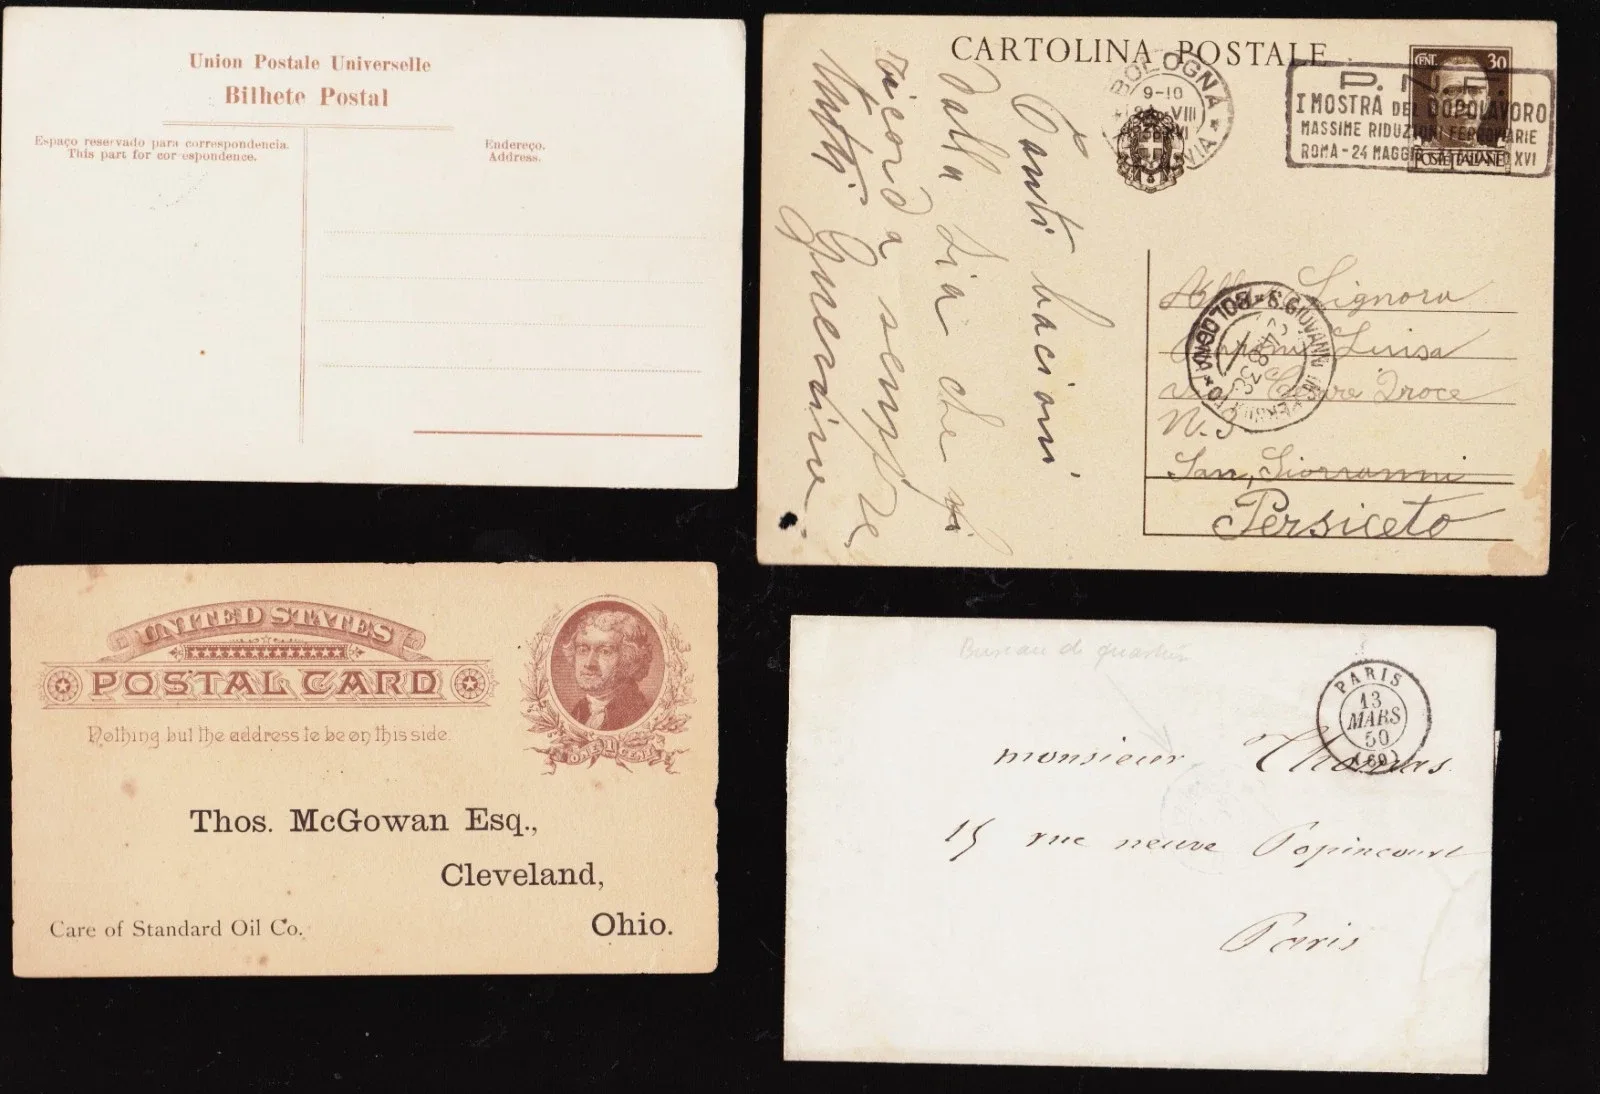 Union Postale Universelle
Bilhete Postal
Espaço reservado para correspondencia.
This part for correspondence.
Endereço.
Address.
CARTOLINA POSTALE
CENT. 30
POSTE ITALIANE
BOLOGNA
9-10
VIII
P.N.F.
I MOSTRA DEL DOPOLAVORO
MASSIME RIDUZIONI FERROVIARIE
ROMA - 24 MAGGIO XVI
Tanti bacioni
dalla Zia che vi
ricorda sempre
tutti
Alla Signora
Luisa
N. 3
San Giovanni
Persiceto
S. GIOVANNI IN PERSICETO * BOLOGNA *
UNITED STATES
POSTAL CARD
Nothing but the address to be on this side.
ONE 1 CENT
Thos. McGowan Esq.,
Cleveland,
Care of Standard Oil Co.
Ohio.
Bureau de quartier
PARIS
13
MARS
50
(60)
monsieur Thomas
15 rue neuve Popincourt
Paris